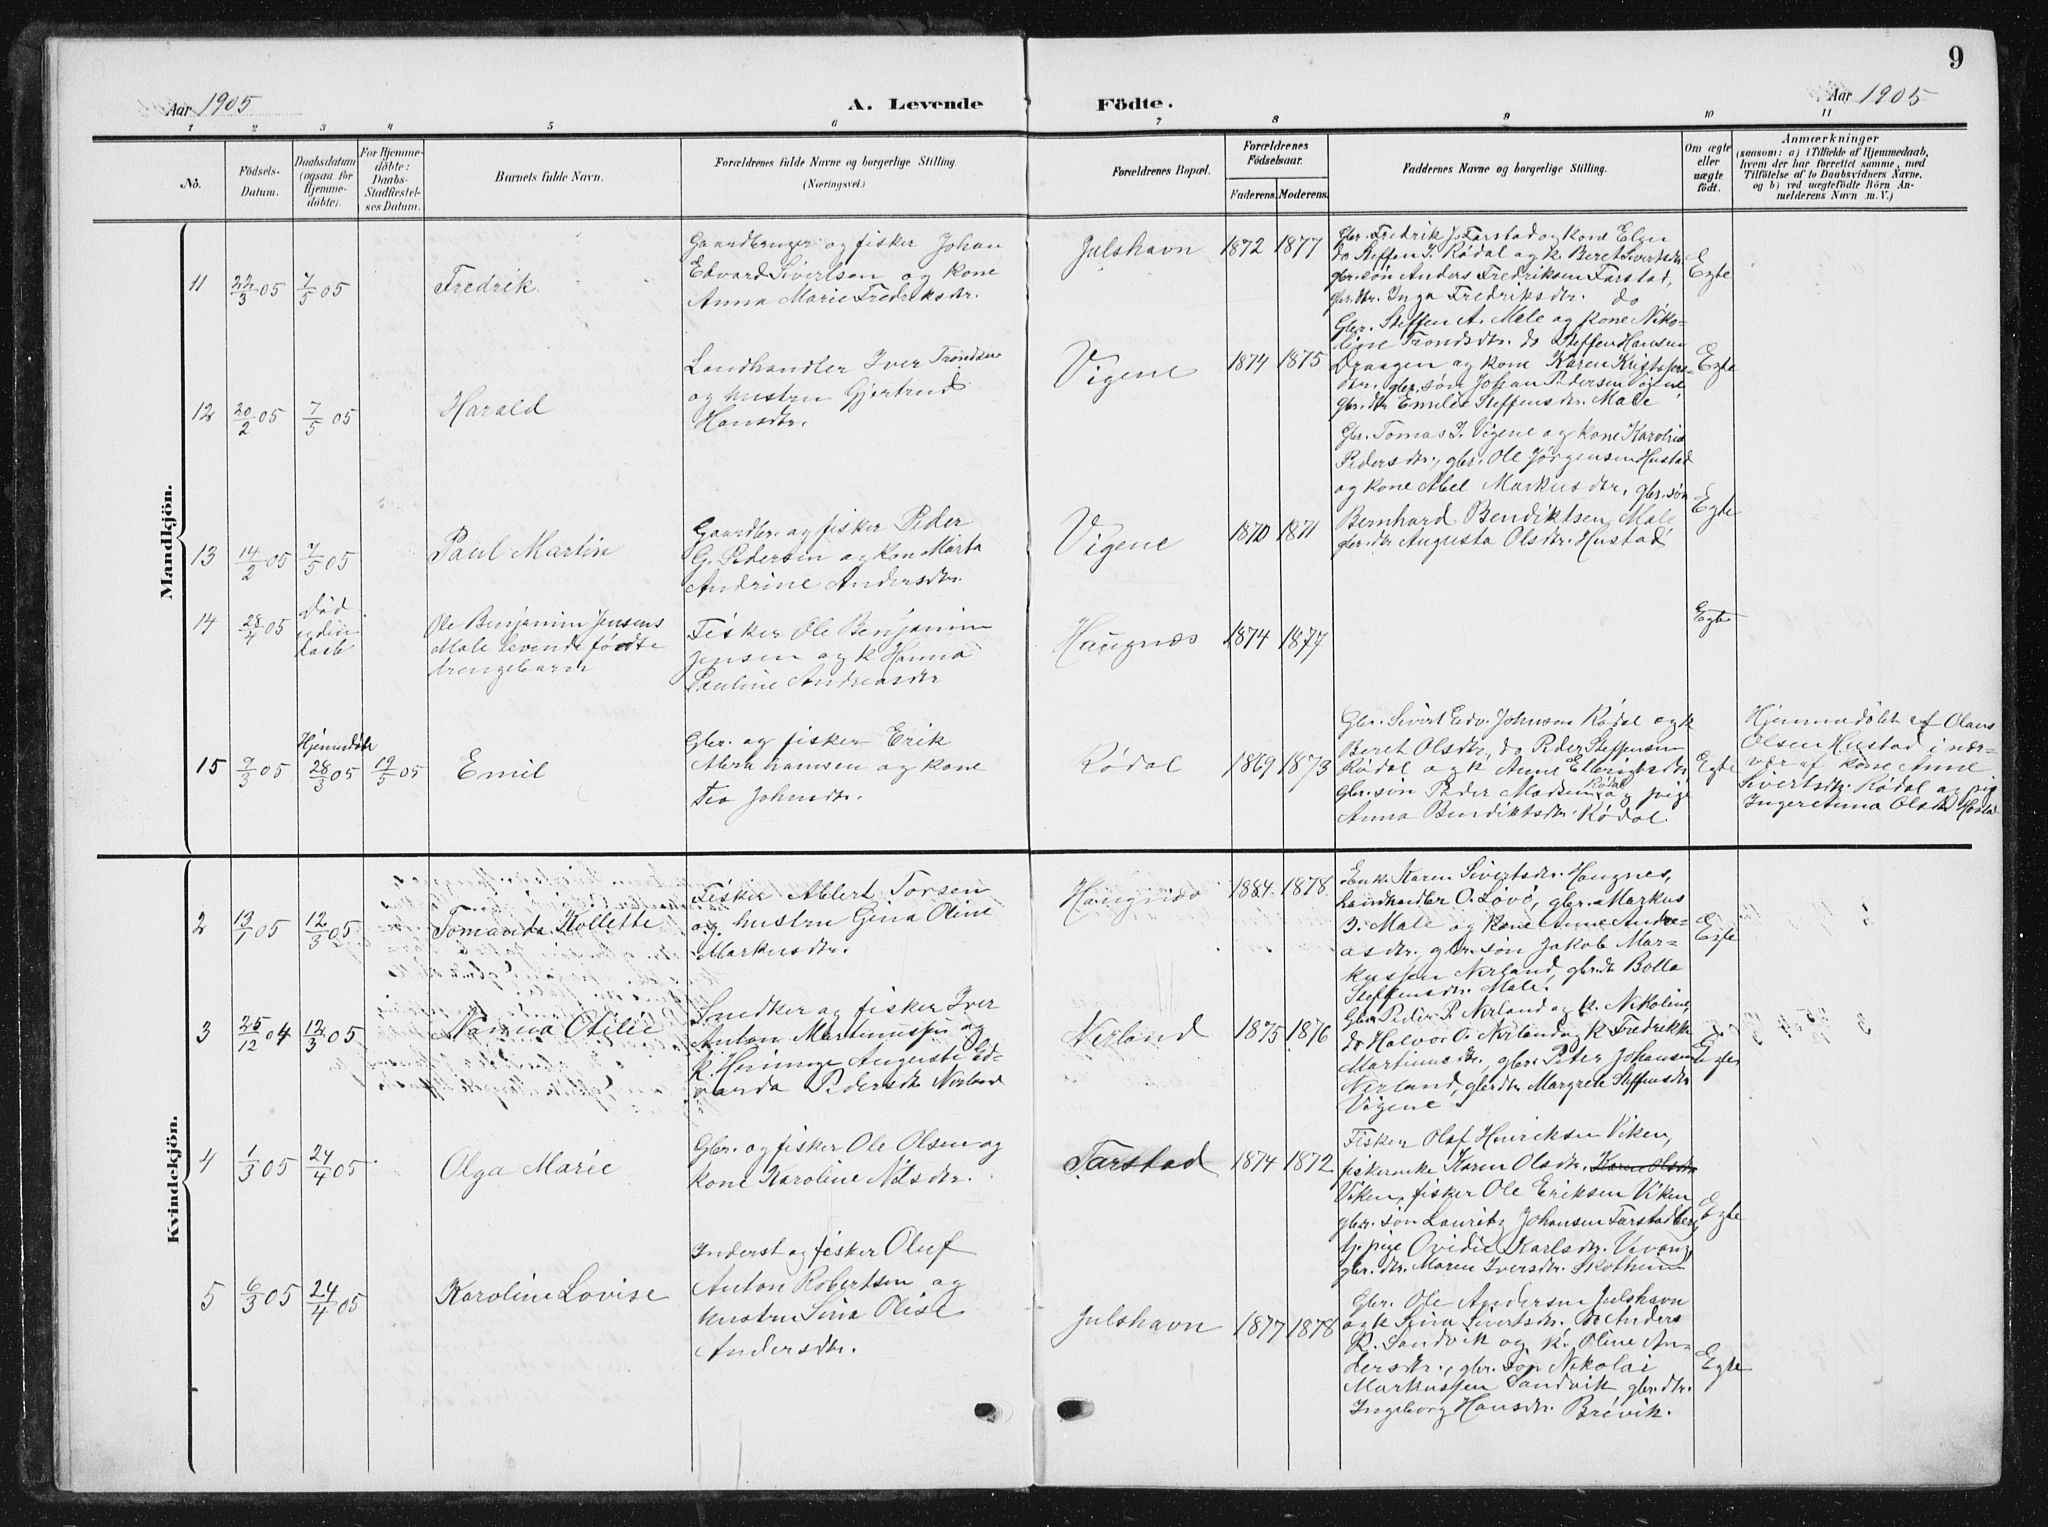 9
Aar 1905
A. Levende
Födte.
Aar 1905
1 2 3 4 5 6 7 8 9 10 11
No.
Födsels-
Datum.
Daabsdatum
(ogsaa for
Hjemme-
döbte).
For Hjemme-
döbte:
Daabs-
Stadfæstel-
ses Datum.
Barnets fulde Navn.
Forældrenes fulde Navne og borgerlige Stilling.
(Næringsvei.)
Forældrenes Bopæl.
Forældrenes
Födselsaar.
Faderens. Moderens.
Faddernes Navne og borgerlige Stilling.
Om ægte
eller
uægte
födt.
Anmærkninger
(saasom: a) i Tilfælde af Hjemmedaab,
hvem der har forrettet samme, med
Tilföielse af to Daabsvidners Navne.
og b) ved uægtefödte Börn An-
melderens Navn m. V.)
Mandkjön.
11 22/3 05 7/5 05
Fredrik.
Gaardbruger og fisker Johan
Edvard Sivertsen og kone
Anna Marie Fredriksdtr.
Julshavn 1872 1877
Gbr. Fredrik J. Farstad og kone Elen
do Steffen J. Rødal og k Beret Sivertsdtr
gbr. søn Anders Fredriksen Farstad,
gbr. dtr. Inga Fredriksdtr. do
Egte
12 20/2 05 7/5 05
Harald
Landhandler Iver Trondsen
og hustru Gjertrud
Hansdtr.
Vigene 1874 1875
Gbr. Steffen A. Male og kone Niko-
line Trondsdtr. do Steffen Hansen
Draagen og kone Karen Kristofers-
dtr. gbr. søn Johan Pedersen Vigene
gbr. dtr Emilie Steffensdtr. Male
Egte
13 14/2 05 7/5 05
Paul Martin
Gaardbr. og fisker Peder
G. Pedersen og kone Marta
Andrine Andersdtr.
Vigene 1870 1871
Gbr. Tomas J. Vigene og kone Karoline
Pedersdtr., gbr. Ole Jørgensen Hustad
og kone Abel Markusdtr, gbr. søn
Bernhard Bendiktsen Male
gbr. dtr Augusta Olsdtr. Hustad
Egte
14 28/4 05
død
uden
daab
Ole Benjamin Jensens
Male levende fødte
drengebarn
Fisker Ole Benjamin
Jensen og k Hanna
Pauline Andreasdtr
Haugnæs 1874 1877
Egte
15 7/3 05
Hjemmedøbt
28/3 05 19/5 05
Emil
Gbr. og fisker Erik
Abrahamsen og kone
Tea Johnsdtr.
Rødal 1869 1873
Gbr. Sivert Edv. Johnsen Rødal og k
Beret Olsdtr, do Peder Steffensen
Rødal og k Anne Ellingsdtr
gbr. søn Peder Madsen Rødal og pige
Anna Bendiktsdtr. Rødal.
Egte
Hjemmedøbt af Olaus
Olsen Hustad i nær-
vær af kone Anne
Sivertsdtr. Rødal og pig
Ingeranna Olsd Hustad
Kvindekjön.
2 13/1 05 12/3 05
Tomanda Kollette
Fisker Albert Torsen
og hustru Gina Oline
Markusdtr.
Haugnæs 1884 1878
Enke Karen Sivertsdtr. Haugnes,
Landhandler O. Løvø, gbr. Markus
J. Male og kone Anne Andre-
asdtr. gbr. søn Jakob Mar-
kussen Nerland, gbr. dt Bolla
Steffensdtr. Male.
Egte
3 25/12 04 12/3 05
Nanna Otilie
Snedker og fisker Iver
Anton Martinussen og
k. Henninge Auguste Ed-
varda Pedersdtr Nerland
Nerland 1875 1876
Gbr. Peder P. Nerland og k. Nikoline,
do Halvor O. Nerland og k Fredrikke
Martinusdtr., gbr. Peter Johansen
Nerland, gbr. dtr. Margrete Steffensdtr
Vigene
Egte
4 1/3 05 24/4 05
Olga Marie
Gbr. og fisker Ole Olsen og
kone Karoline Nilsdtr.
Farstad 1874 1872
Fisker Olaf Henriksen Viken,
fiskerenke Karen Olsdtr. Karen Olsdtr
Viken, fisker Ole Eriksen Viken
gbr. søn Lauritz Johansen Farstadberg
tj. pige Ovidie Karlsdtr. Vevang,
gbr. dtr. Maren Iversdtr. Skotheim
Egte
5 6/3 05 24/4 05
Karoline Lovise
Inderst og fisker Oluf
Anton Robertsen og
hustru Sina Olise
Andersdtr.
Julshavn 1877 1878
Gbr. Ole Andersen Julshavn
og k Sina Sivertsdtr, do Anders
P. Sandvik og k. Oline An-
dersdtr., gbr. søn Nikolai
Markussen Sandvik gbr. dtr.
Ingeborg Hansdtr. Brevik.
Egte